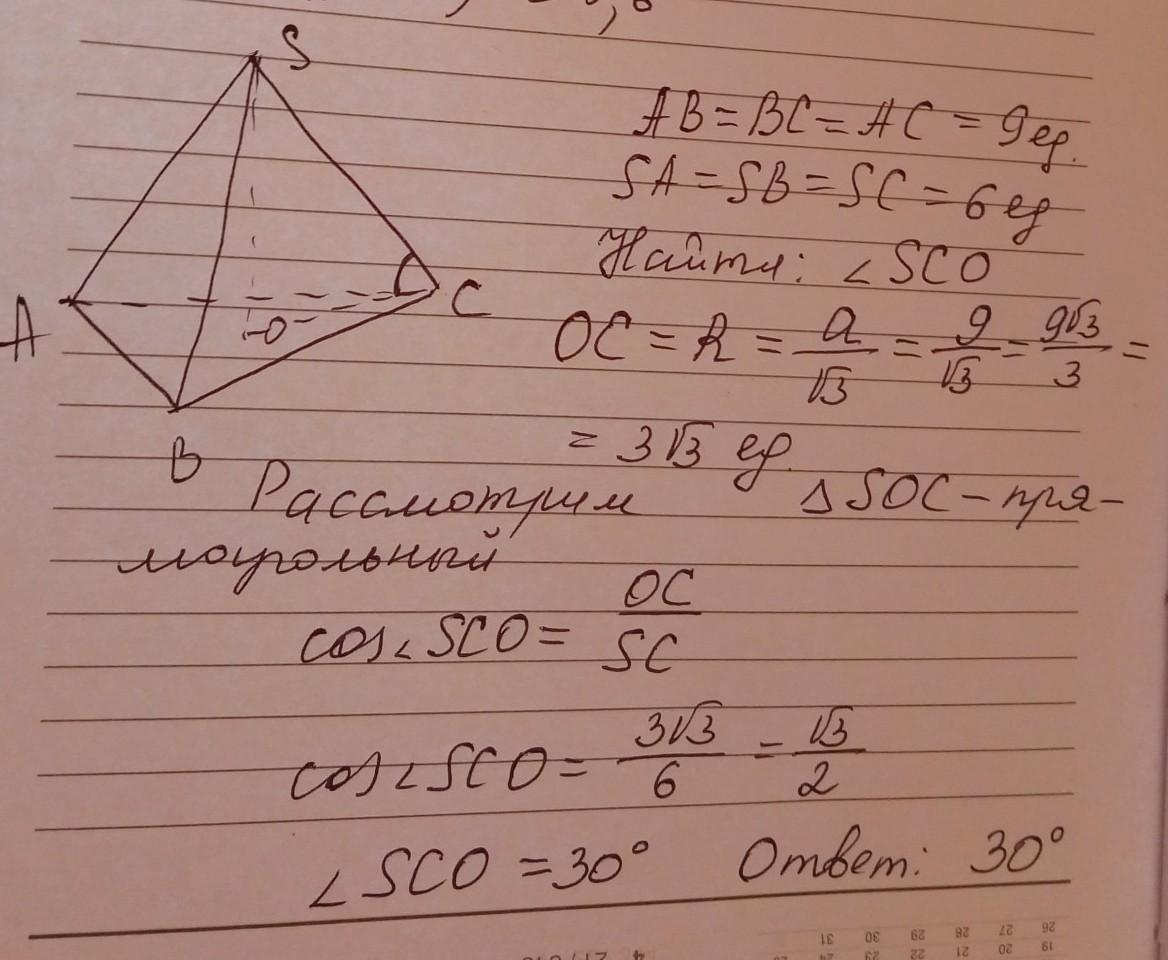 S
AB = BC = AC = 9 ед.
SA = SB = SC = 6 ед
Найти: ∠SCO
A
C
O
B
OC = R = a/√3 = 9/√3 = 9√3/3 =
= 3√3 ед.
Рассмотрим △SOC – пря-
моугольный
cos∠SCO = OC/SC
cos∠SCO = 3√3/6 = √3/2
∠SCO = 30° Ответ: 30°
26 27 28 29 30 31
19 20 21 22 23 24